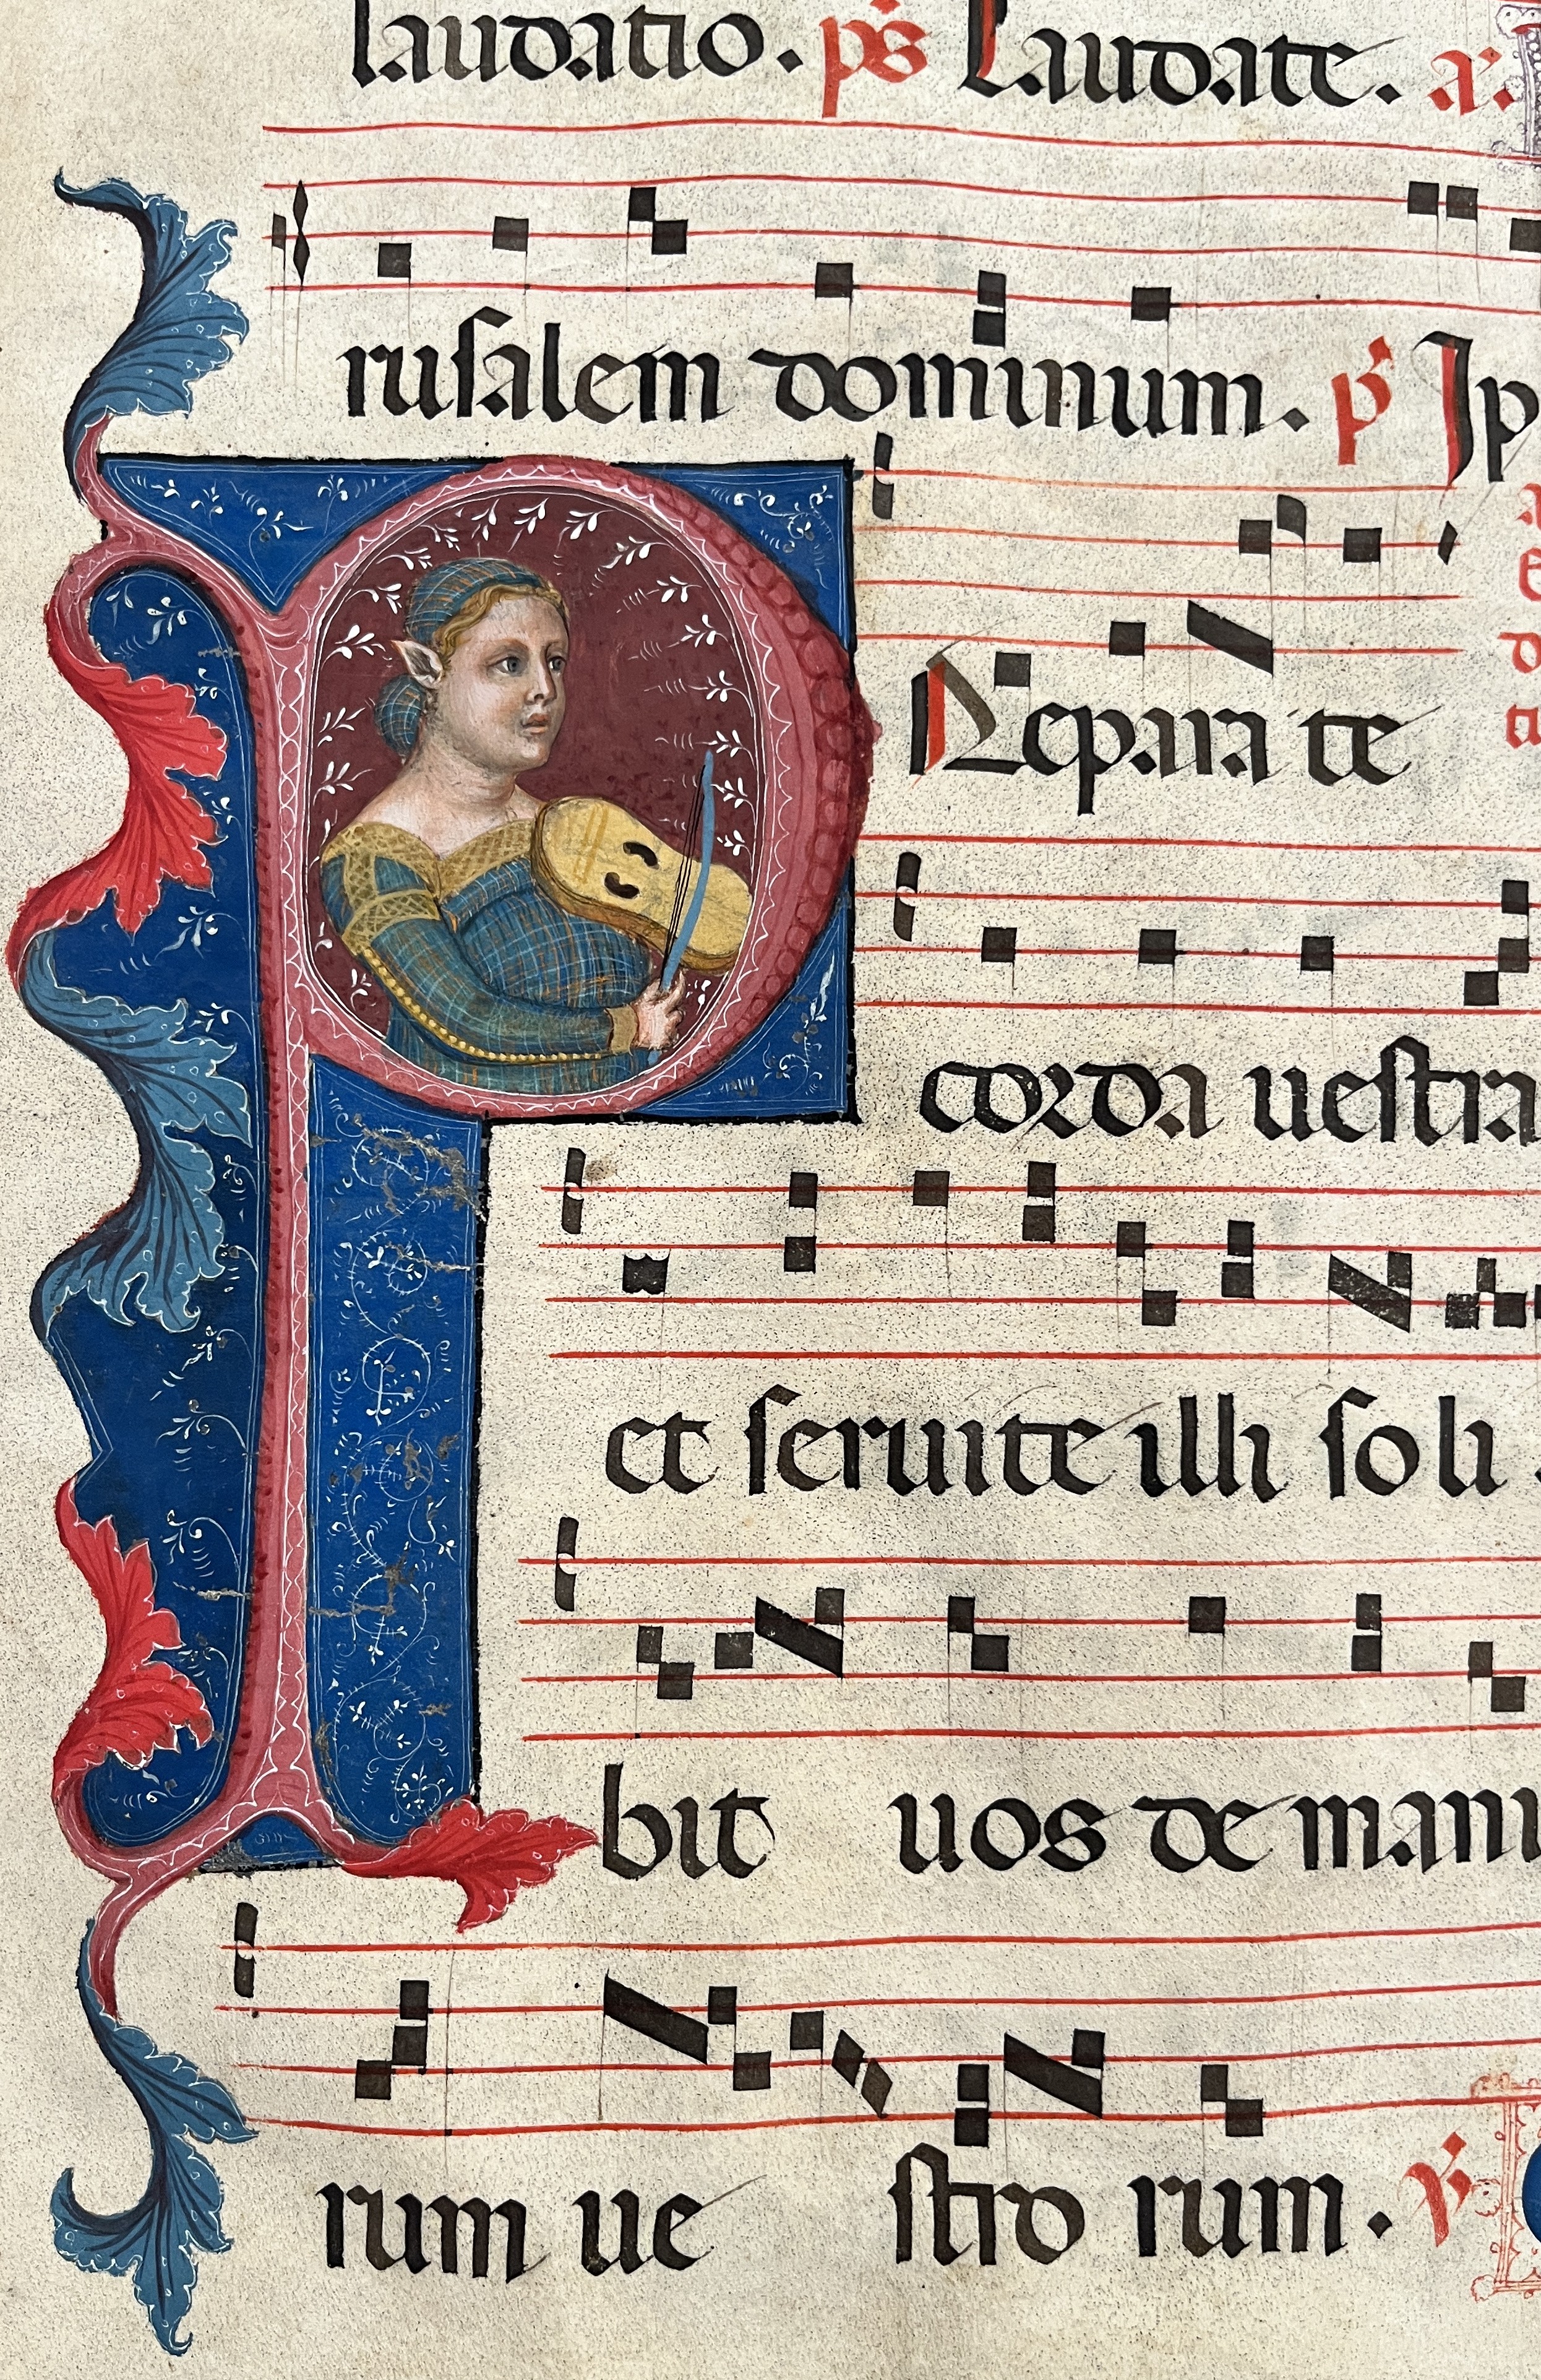 laudatio. ps Laudate. a.
rusalem dominum. p Ip
P Repara te
corda uestra
et seruite illi soli.
bit uos de manu
rum ue stro rum. V